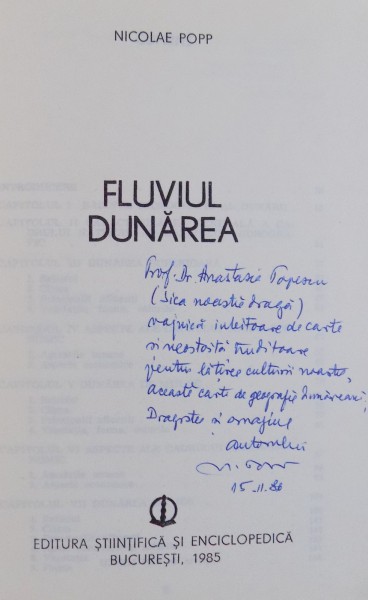 NICOLAE POPP
FLUVIUL
DUNĂREA
Prof. Dr. Anastasie Popescu
(Sica noastră dragă)
vajnică iubitoare de carte
și neostoită truditoare
pentru lățirea culturii noastre,
această carte de geografie dunăreană,
Dragostea și omagiul
autorului
N. Popp
15.II.86
EDITURA ȘTIINȚIFICĂ ȘI ENCICLOPEDICĂ
BUCUREȘTI, 1985